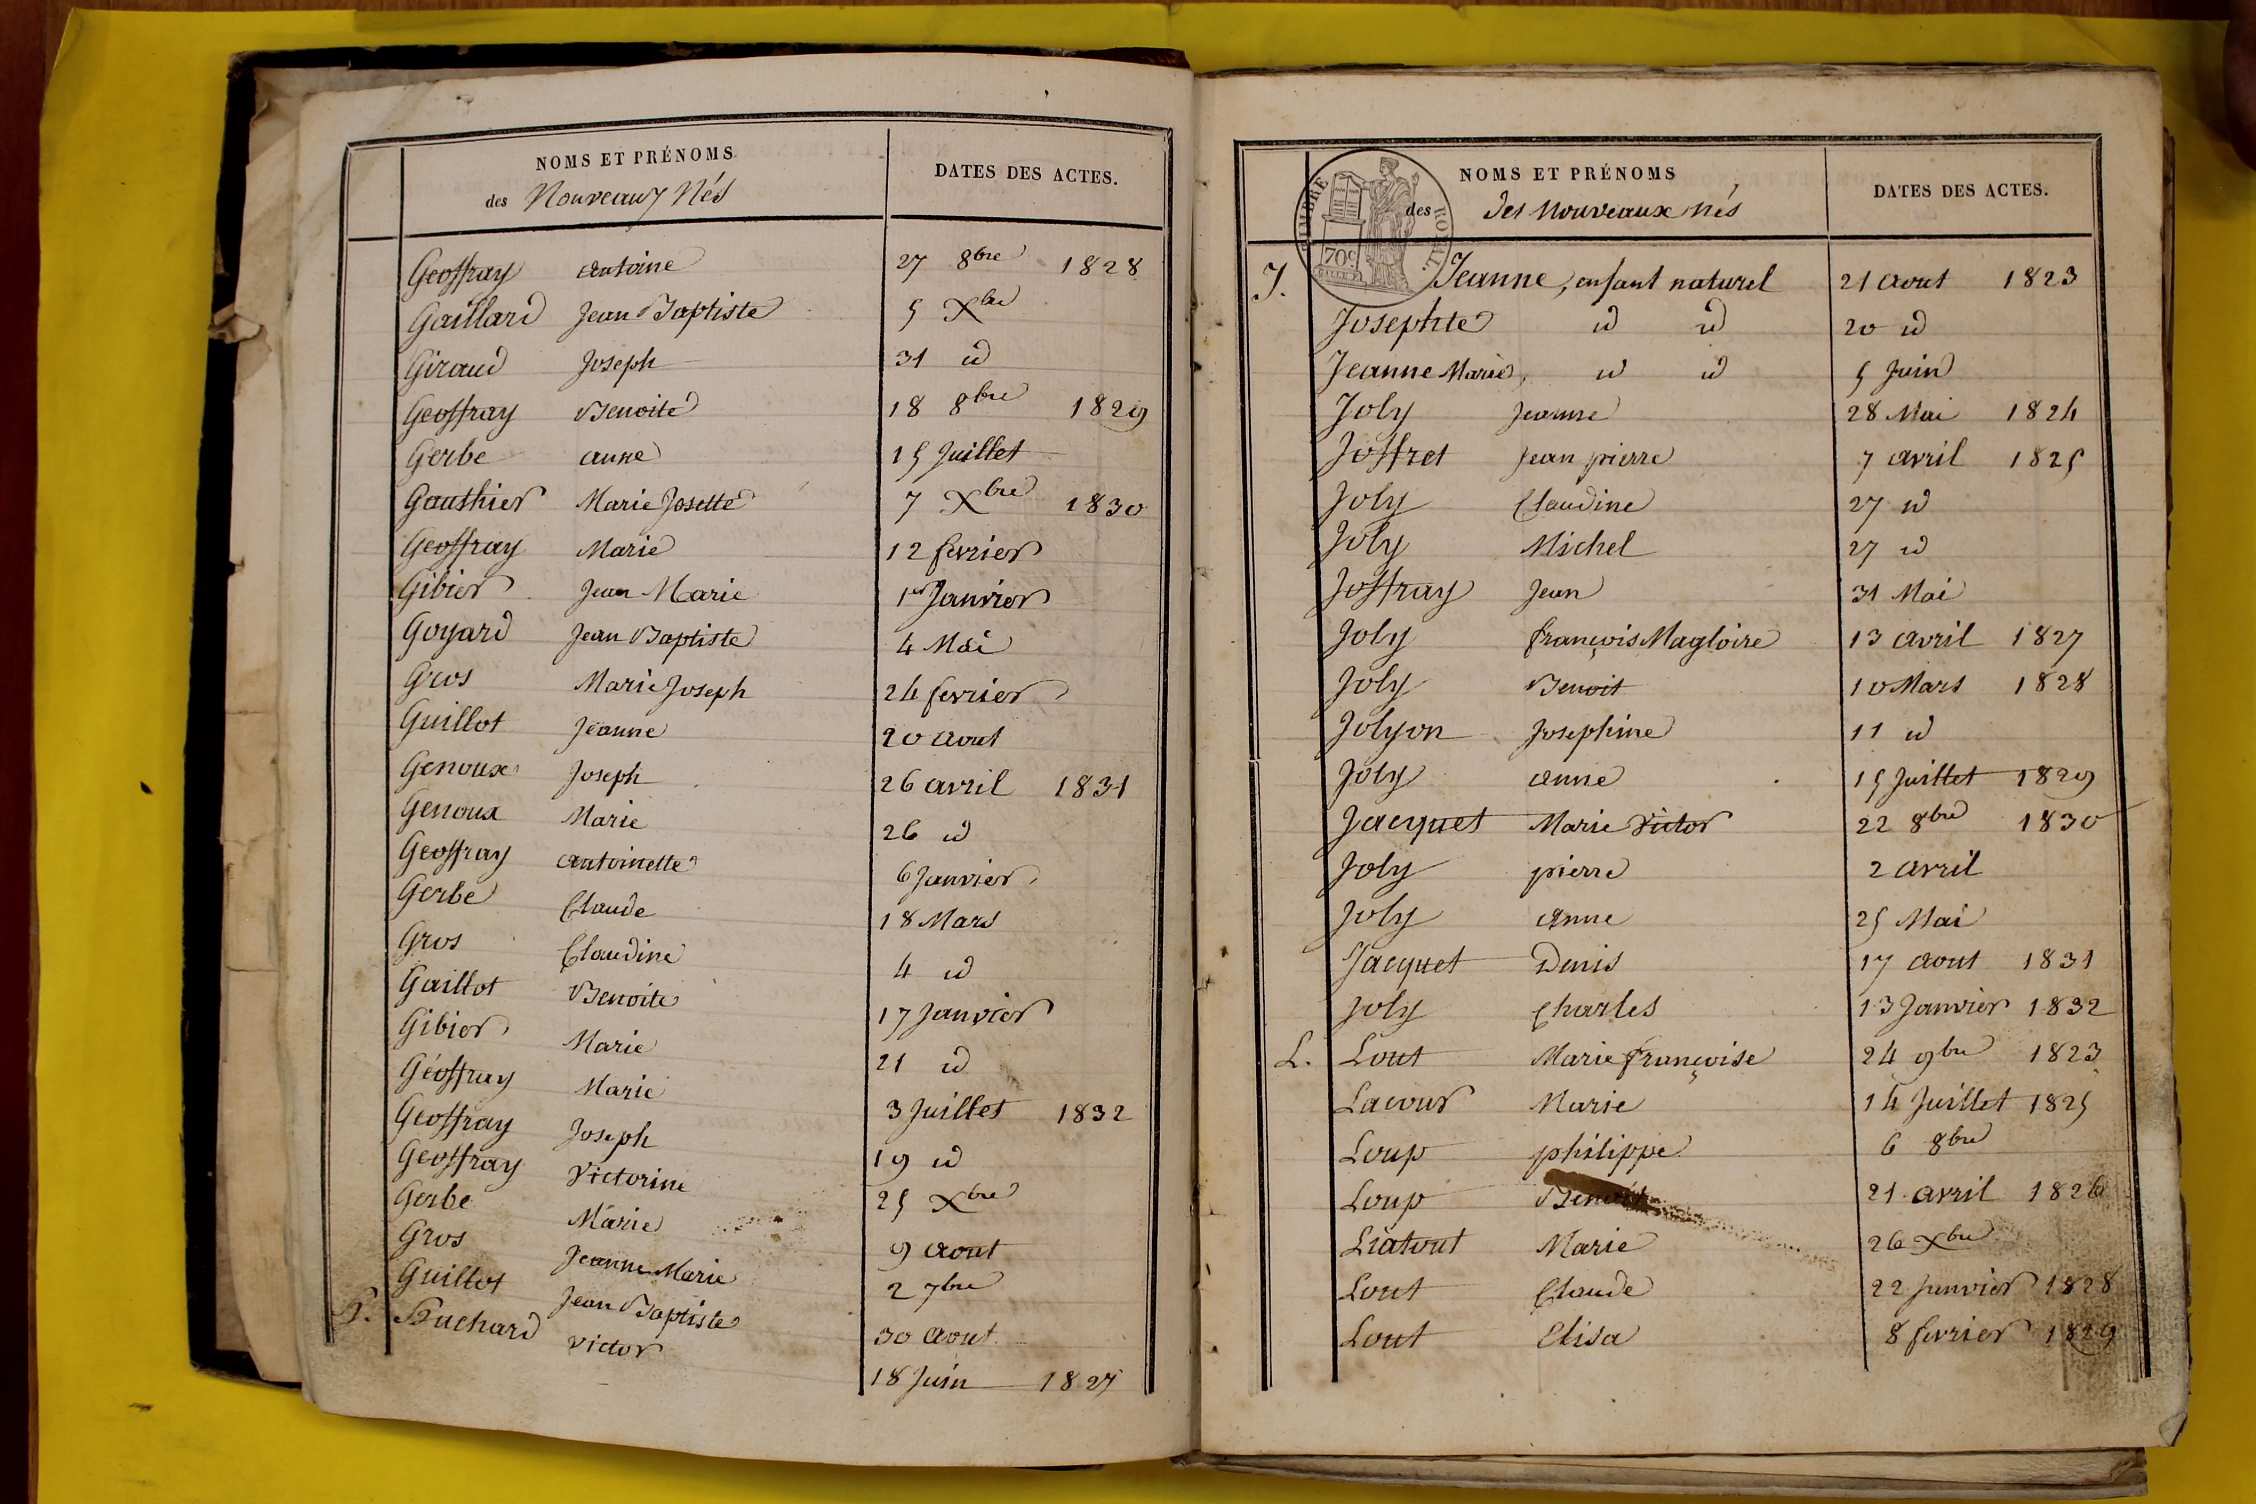 NOMS ET PRÉNOMS
des Nouveaux Nés
DATES DES ACTES.
Geoffray Antoine 27 8bre 1828
Gaillard Jean Baptiste 5 Xbre
Giraud Joseph 31 id
Geoffray Benoite 18 8bre 1829
Gerbe anne 15 Juillet
Gauthier Marie Josette 7 Xbre 1830
Geoffray Marie 12 fevrier
Gibier Jean Marie 1er Janvier
Goyard Jean Baptiste 4 Mai
Gros Marie Joseph 24 fevrier
Guillot Jeanne 20 aout
Genoux Joseph 26 avril 1831
Genoux Marie 26 id
Geoffray antoinette 6 Janvier
Gerbe Claude 18 Mars
Gros Claudine 4 id
Gaillot Benoite 17 Janvier
Gibier Marie 21 id
Géoffray Marie 3 Juillet 1832
Geoffray Joseph 19 id
Geoffray Victorine 25 Xbre
Gerbe Marie 9 aout
Gros Jeanne Marie 2 7bre
Guillot Jean Baptiste 30 aout
H. Huchard Victor 18 Juin 1827
NOMS ET PRÉNOMS
des des nouveaux nés
DATES DES ACTES.
TIMBRE ROYAL.
70c
J. Jeanne, enfant naturel 21 aout 1823
Josephte id id 20 id
Jeanne Marie, id id 5 Juin
Joly Jeanne 28 Mai 1824
Joffret Jean pierre 7 avril 1825
Joly Claudine 27 id
Joly Michel 27 id
Joffray Jean 31 Mai
Joly françois Magloire 13 avril 1827
Joly Benoit 10 Mars 1828
Jolyon Josephine 11 id
Joly anne 15 Juillet 1829
Jacquet Marie Victor 22 8bre 1830
Joly pierre 2 avril
Joly anne 25 Mai
Jacquet Denis 17 aout 1831
Joly Charles 13 Janvier 1832
L. Lout Marie françoise 24 9bre 1823
Lacour Marie 14 Juillet 1825
Loup philippe 6 8bre
Loup Benoit 21 avril 1826
Liatout Marie 26 Xbre
Lout Claude 22 Janvier 1828
Lout Elisa 8 fevrier 1829